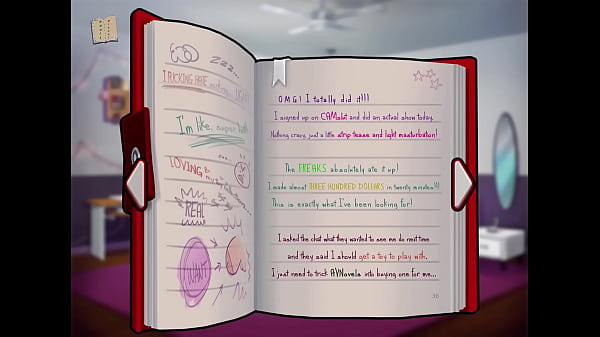 zzz...
I'm like, super
LOVING
REAL
WANT
OMG! I totally did it!!!
I signed up on CAMslut and did an actual show today.
Nothing crazy, just a little strip tease and light masturbation!
The FREAKS absolutely ate it up!
I made almost THREE HUNDRED DOLLARS in twenty minutes!!!
This is exactly what I've been looking for!
I asked the chat what they wanted to see me do next time
and they said I should get a toy to play with.
I just need to trick AVNovels into buying one for me...
36